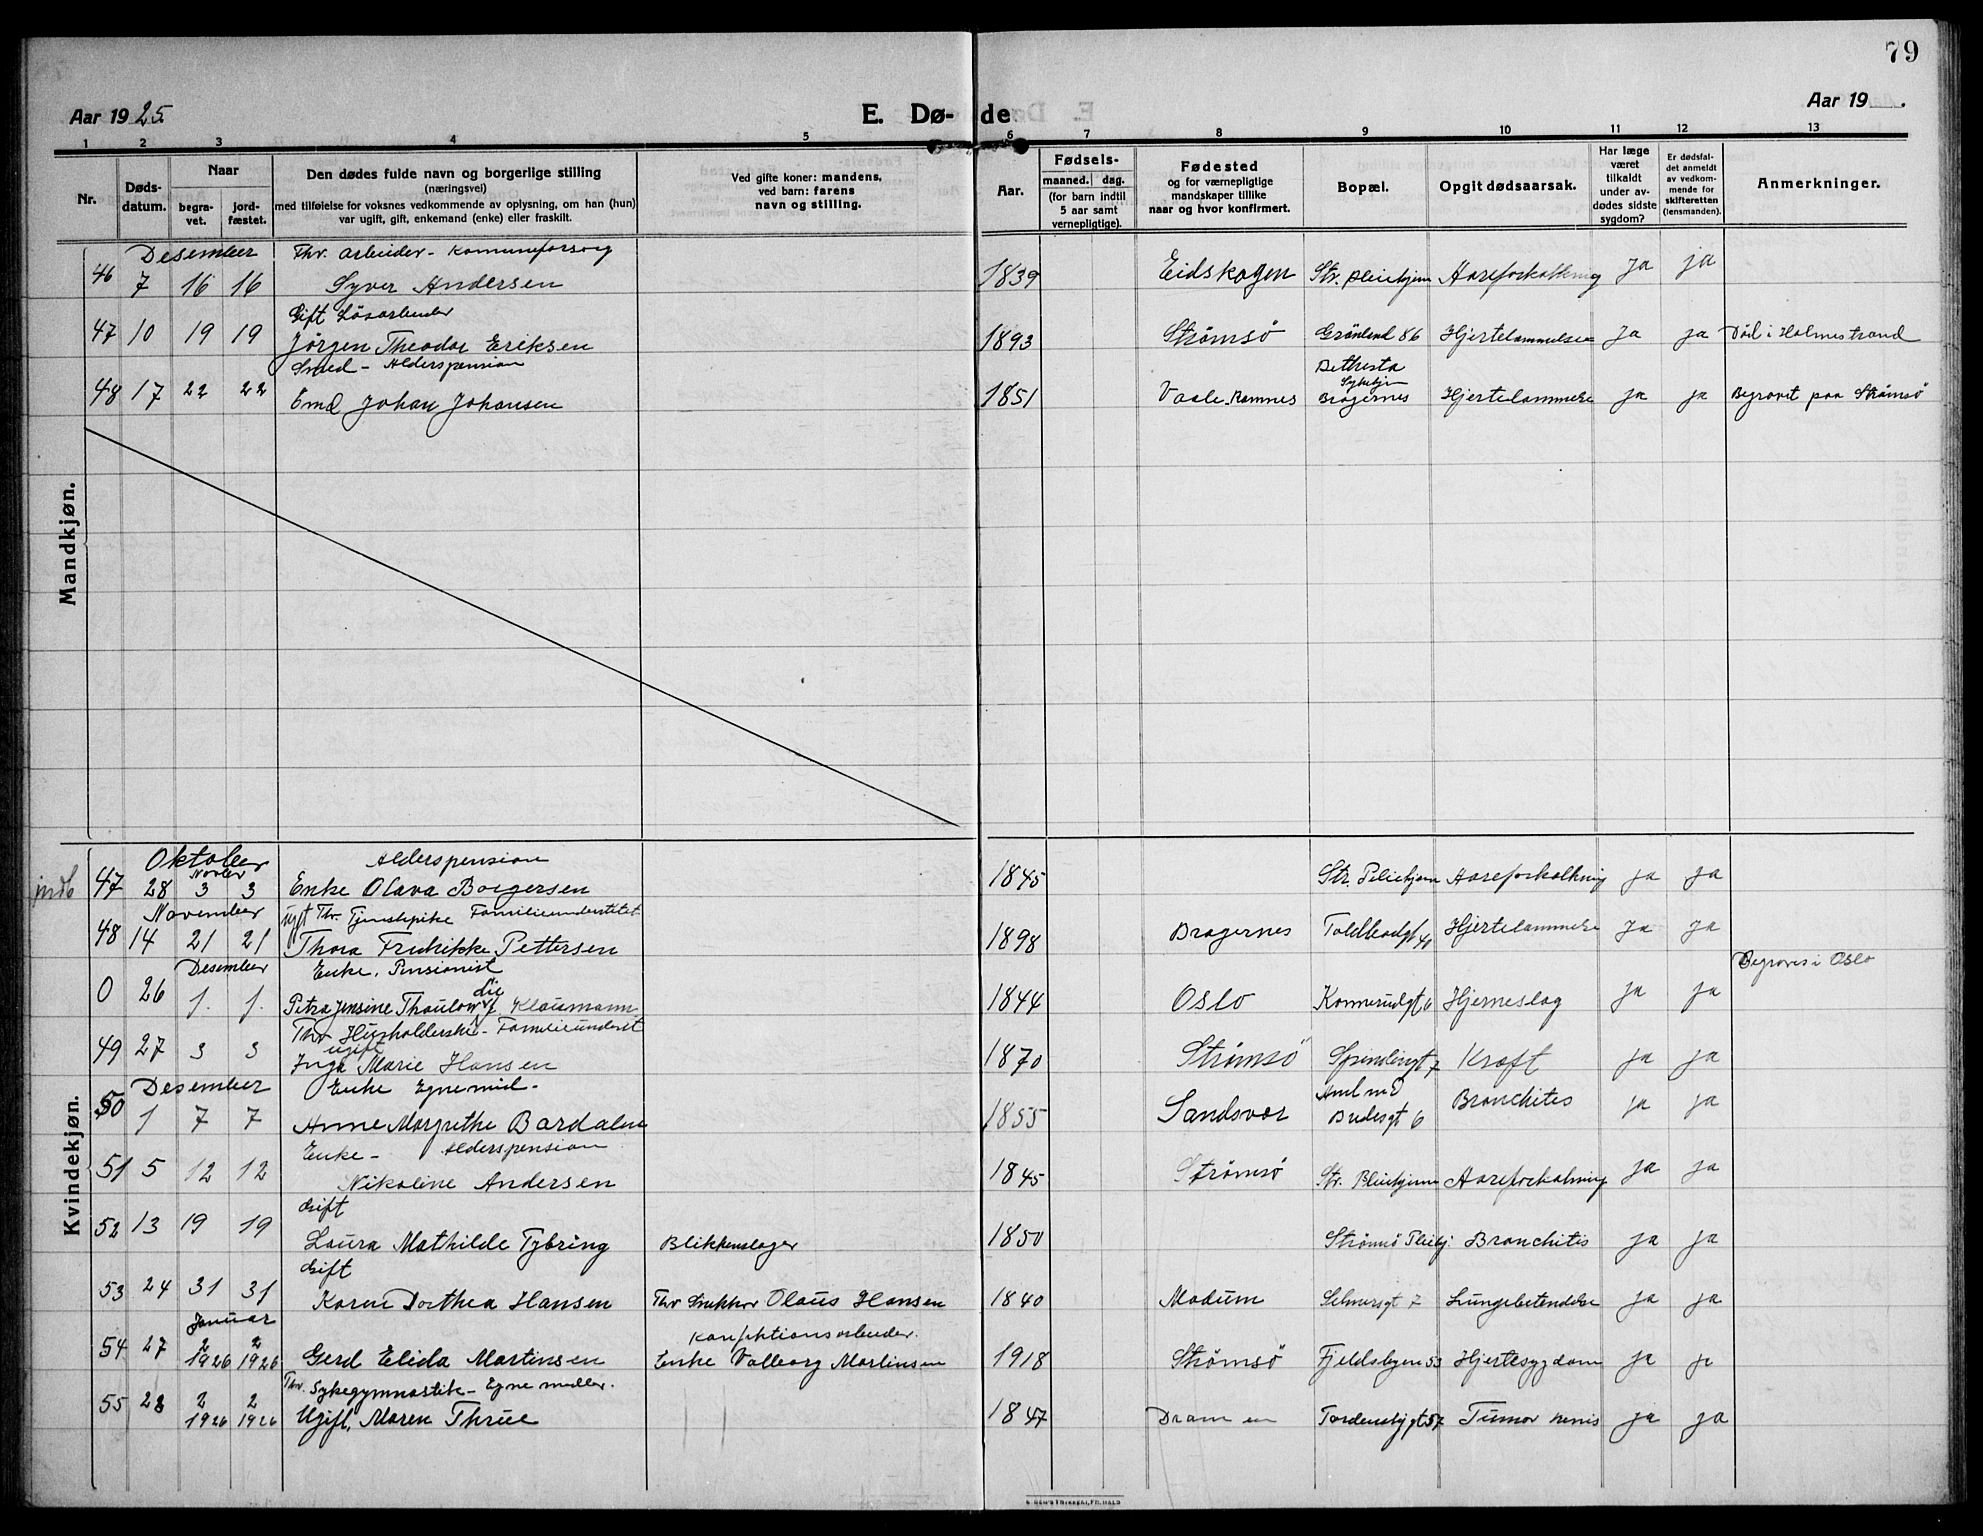 79
Aar 1925.
E. Dø- de
Aar 19   .
1 2 3 4 5 6 7 8 9 10 11 12 13
Nr.
Døds-
datum.
Naar
begra-
vet.
jord-
fæstet.
Den dødes fulde navn og borgerlige stilling
(næringsvei)
med tilføielse for voksnes vedkommende av oplysning, om han (hun)
var ugift, gift, enkemand (enke) eller fraskilt.
Ved gifte koner: mandens,
ved barn: farens
navn og stilling.
Aar.
Fødsels-
maaned. dag.
(for barn indtil
5 aar samt
vernepligtige).
Fødested
og for værnepligtige
mandskaper tillike
naar og hvor konfirmert.
Bopæl.
Opgit dødsaarsak.
Har læge
været
tilkaldt
under av-
dødes sidste
sygdom?
Er dødsfal-
det anmeldt
av vedkom-
mende for
skifteretten
(lensmanden).
Anmerkninger.
Mandkjøn.
Desember Fhv. arbeider - Komuneforsorg
46 7 16 16 Syver Andersen 1839 Eidskogen Str. pleiehjem Aareforkalkning ja ja
Gift Løsarbeider
47 10 19 19 Jørgen Theodor Eriksen 1893 Strømsø Grønland 86 Hjertelammelse ja ja Død i Holmestrand
Smed - Alderspension Bethesta
Sykehjem
48 17 22 22 Johan Johansen 1851 Vaale, Ramnes Bragernes Hjertelammelse ja ja Begravet paa Strømsø
Kvindekjøn.
Oktober Alderspension
Novbr
47 28 3 3 Enke Olava Borgersen 1845 Str. Pleiehjem Aareforkalkning ja ja
November ugift Fhv. Tjenestepike Familieunderstøttet
48 14 21 21 Thora Fredrikke Pettersen 1898 Bragernes Toldbodgt 41 Hjertelammelse ja ja
Desember Enke, Pensionist Begraves i Oslo
0 26 1. 1. Petra Jensine Thaulow Klausmann 1844 Oslo Konnerudgt 6 Hjerneslag ja ja
Fhv Husholderske - Familieunderst
ugift
49 27 3 3 Inga Marie Hansen 1870 Strømsø 7 Kræft ja ja
Desember Enke Egne mid.
50 1 7 7 Anne Margrethe Bardalen 1855 Sandsvær 6 Bronchites ja ja
Enke - Alderspension
51 5 12 12 Nikoline Andersen 1845 Strømsø Str. Pleiehjem Aareforkalkning ja ja
Gift
52 13 19 19 Laura Mathilde Tybring Blikkenslager 1850 Strømsø Pleiehj. Bronchitis ja ja
Gift
53 24 31 31 Karen Dorthea Hansen Fhv Snekker Olaus Hansen 1840 Modum Selmersgt 7 Lungebetendelse ja ja
Januar Konfektionsarbeider.
54 27 2 1926 2 1926 Gerd Elida Martinsen Enke Valborg Martinsen 1918 Strømsø Fjeldsbyen 53 Hjertesygdom ja ja
Fhv. Sykegymnastik - Egne midler.
55 28 2 1926 2 1926 Ugift, Maren Thrue 1847 Drammen Tordenskjgt 57 Tumor ja ja